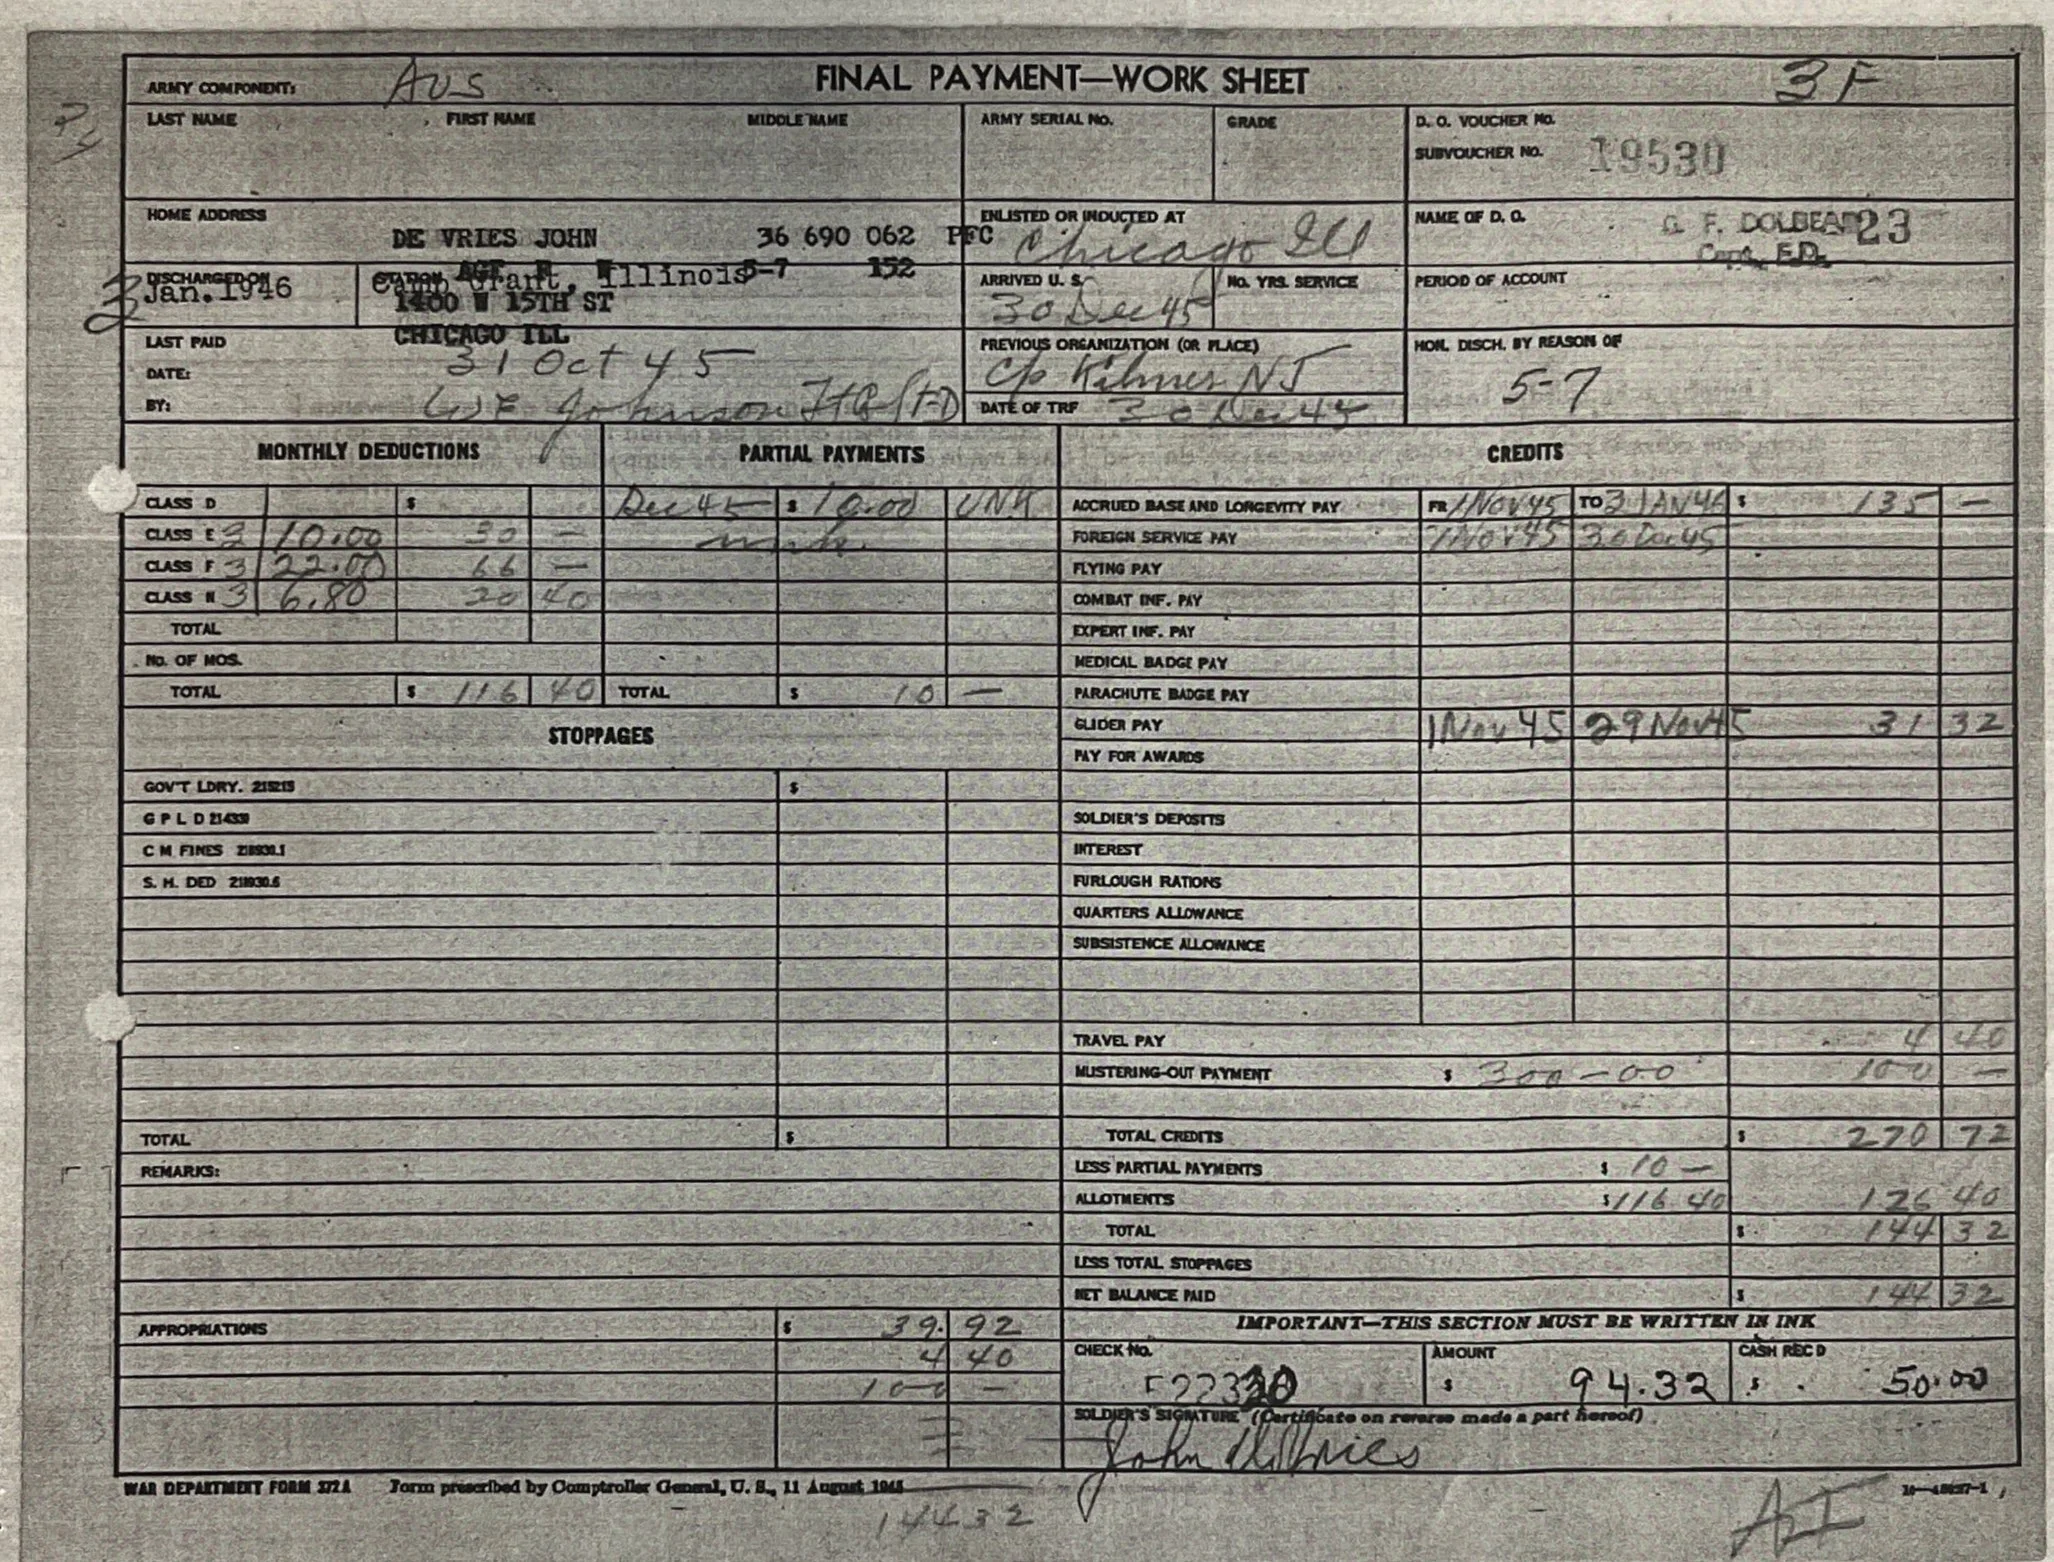 ARMY COMPONENT: AUS FINAL PAYMENT—WORK SHEET 3 F
LAST NAME FIRST NAME MIDDLE NAME ARMY SERIAL NO. GRADE D. O. VOUCHER NO.
SUBVOUCHER NO. 19530
HOME ADDRESS ENLISTED OR INDUCTED AT Chicago Ill NAME OF D. O. G. F. DOLBEAR 23
Capt. F.D.
DE VRIES JOHN 36 690 062 PFC
AGF N W 5-7 152
DISCHARGED ON 3 Jan. 1946 STATION Camp Grant, Illinois ARRIVED U. S. 30 Dec 45 NO. YRS. SERVICE PERIOD OF ACCOUNT
1400 W 15TH ST
CHICAGO ILL
LAST PAID PREVIOUS ORGANIZATION (OR PLACE) HON. DISCH. BY REASON OF
DATE: 31 Oct 45 Cp Kilmer NJ 5-7
BY: WF Johnson DATE OF TRF 30 Dec 45
MONTHLY DEDUCTIONS PARTIAL PAYMENTS CREDITS
CLASS D $ Dec 45 $ 10.00 UNK ACCRUED BASE AND LONGEVITY PAY FR 1 Nov 45 TO 3 JAN 46 $ 135 —
CLASS E 3 10.00 30 — FOREIGN SERVICE PAY 1 Nov 45 30 Dec 45
CLASS F 3 22.00 66 — FLYING PAY
CLASS N 3 6.80 20 40 COMBAT INF. PAY
TOTAL EXPERT INF. PAY
NO. OF MOS. MEDICAL BADGE PAY
TOTAL $ 116 40 TOTAL $ 10 — PARACHUTE BADGE PAY
STOPPAGES GLIDER PAY 1 Nov 45 29 Nov 45 31 32
PAY FOR AWARDS
GOV'T LDRY. 215215 $
G P L D 214330 SOLDIER'S DEPOSITS
C M FINES 218930.1 INTEREST
S. H. DED 218930.6 FURLOUGH RATIONS
QUARTERS ALLOWANCE
SUBSISTENCE ALLOWANCE
TRAVEL PAY 4 40
MUSTERING-OUT PAYMENT $ 300-00 100 —
TOTAL $ TOTAL CREDITS $ 270 72
REMARKS: LESS PARTIAL PAYMENTS $ 10 —
ALLOTMENTS $ 116 40 126 40
TOTAL $ 144 32
LESS TOTAL STOPPAGES
NET BALANCE PAID $ 144 32
APPROPRIATIONS $ 39. 92 IMPORTANT—THIS SECTION MUST BE WRITTEN IN INK
4 40 CHECK NO. AMOUNT CASH REC'D
100 — $ 94.32 $ 50.00
SOLDIER'S SIGNATURE (Certificate on reverse made a part hereof)
John DeVries
WAR DEPARTMENT FORM 372A Form prescribed by Comptroller General, U. S., 11 August 1945
144 32